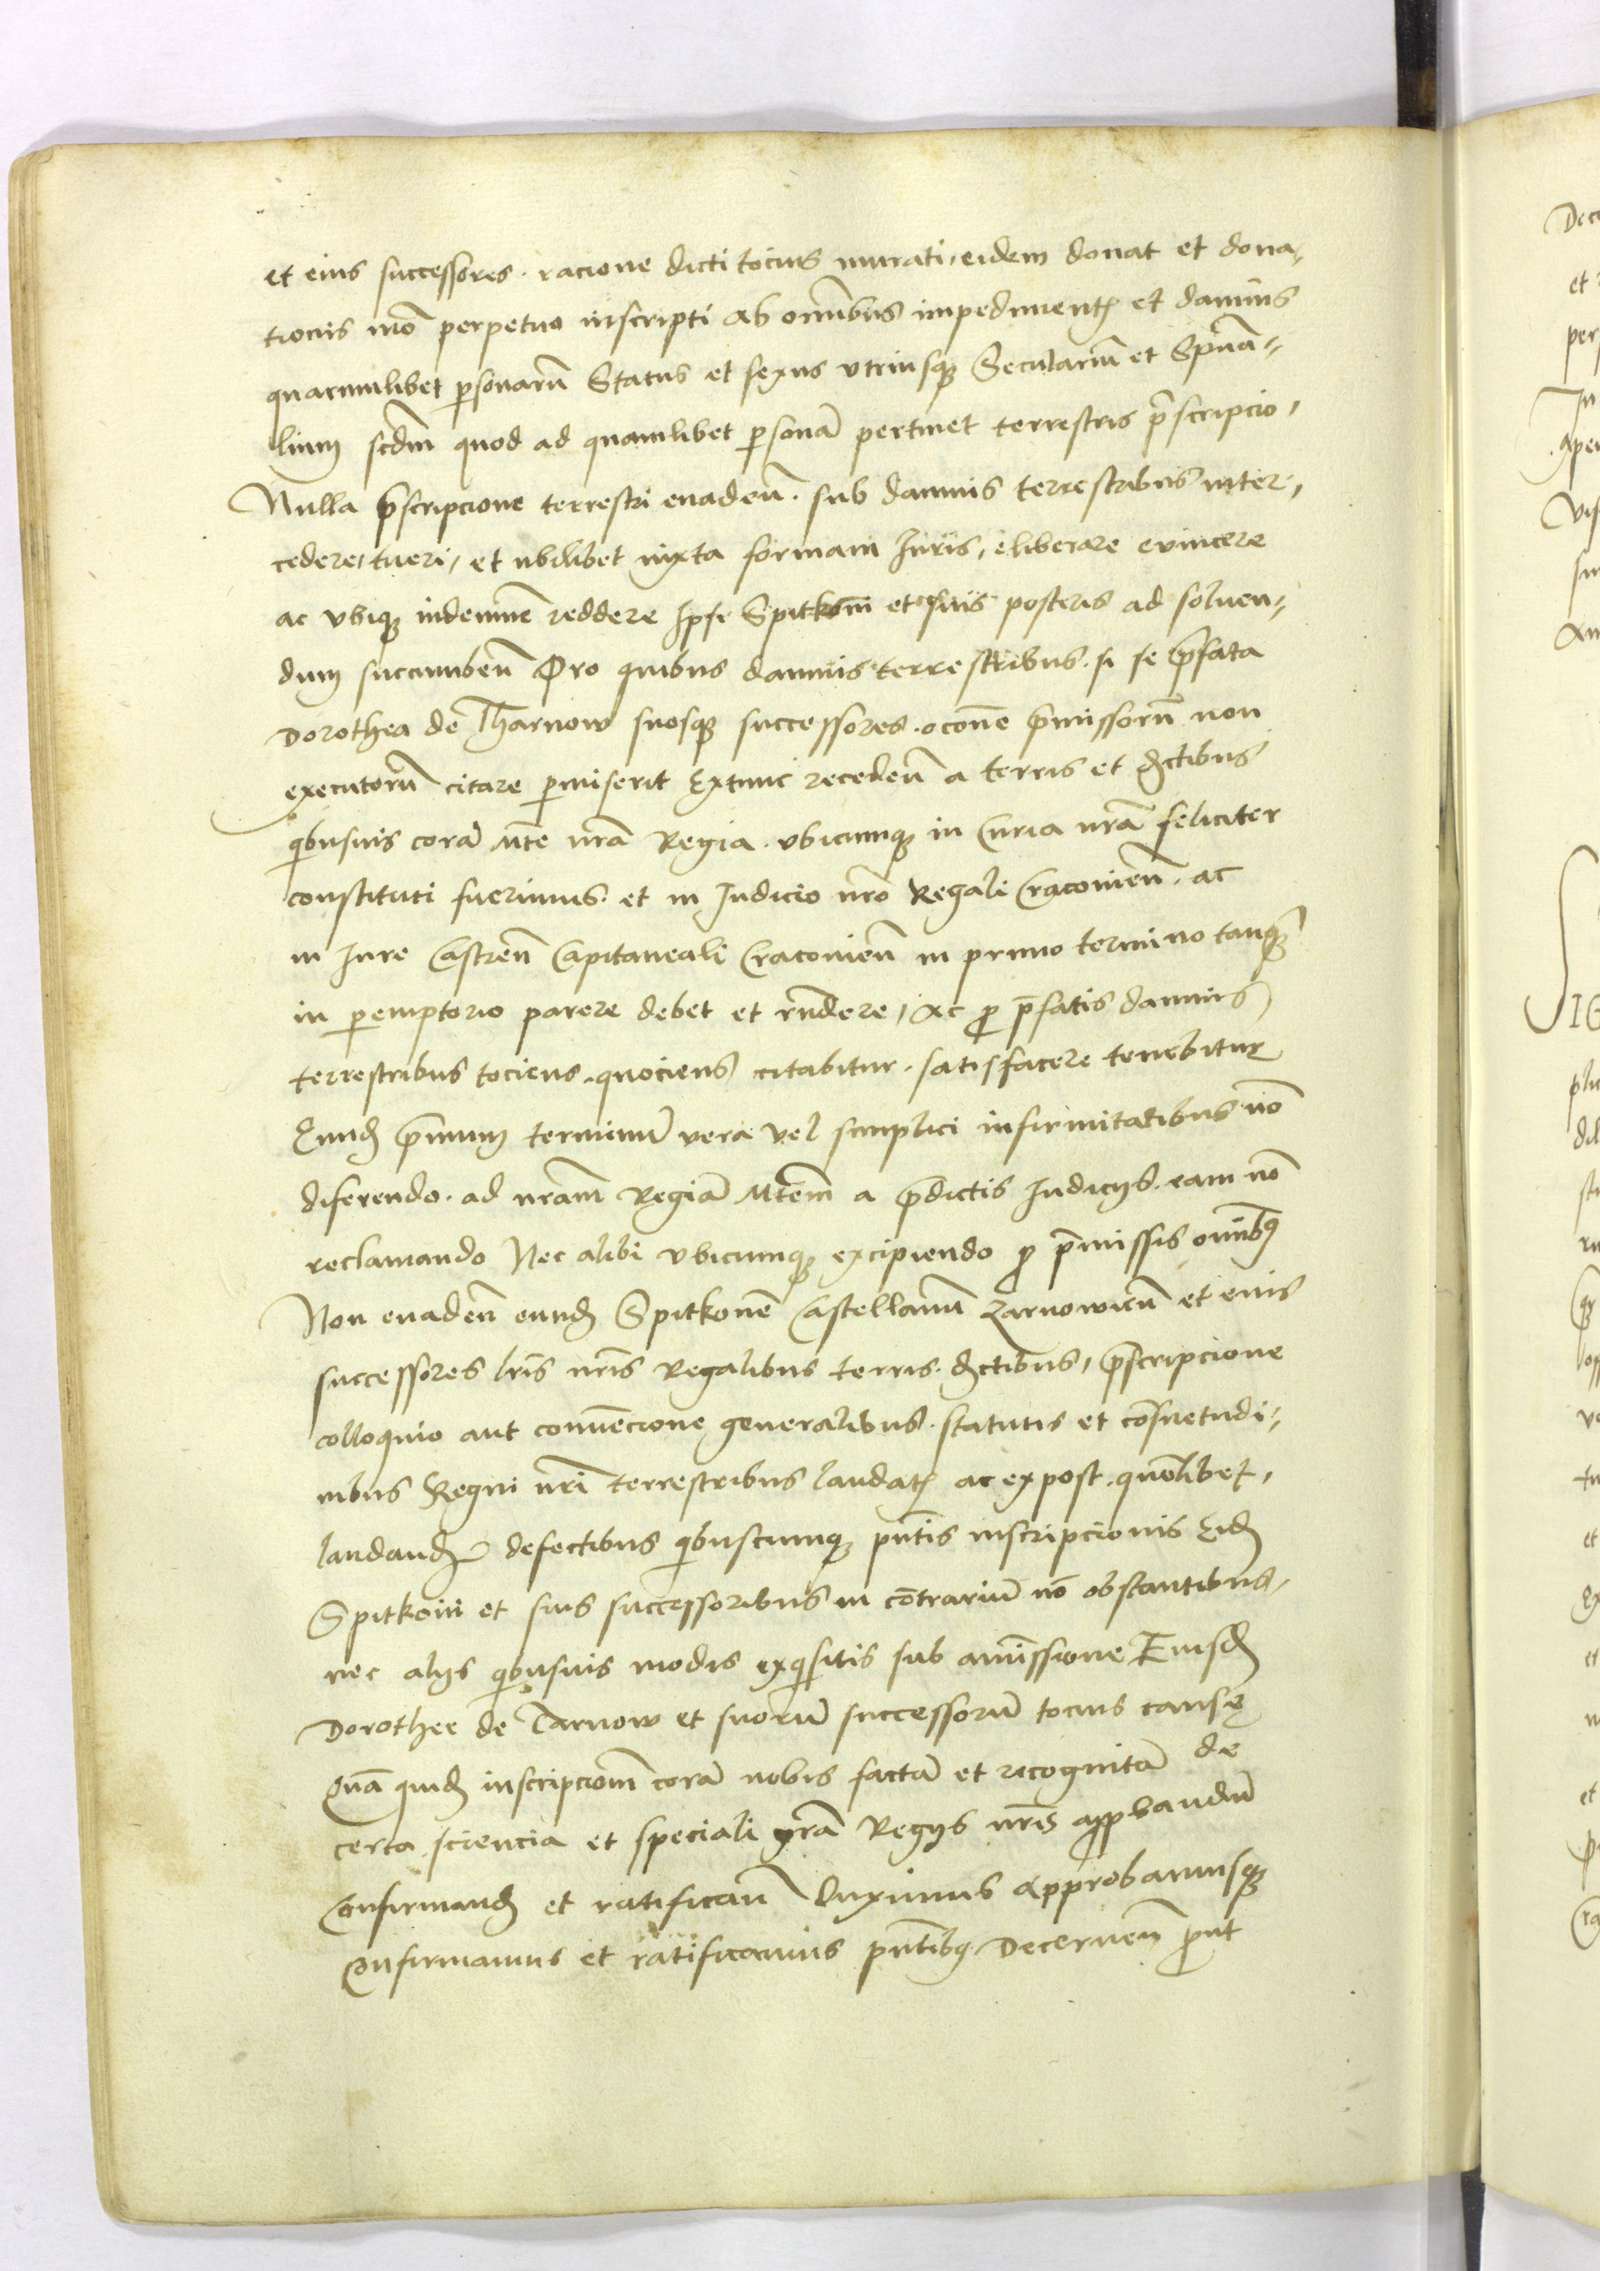 et eius successores. racione dicti tocius murati, eidem donat et dona-
tionis mo͞ perpetuo inscripti ab omnibus impediment̄ et damnis
quarumlibet personarū Status et sexus utriusqꝫ Seculariū et Spūa-
lium scdm̄ quod ad quamlibet personā pertinet terrestris prēscripcio,
Nulla p̄scripcione terrestri evadeñ. sub damnis terrestribus inter-
cedere, tueri, et ubilibet iuxta formam Iuris, eliberare evincere
ac ubiqꝫ indemnē reddere Ipsi Spitkoni et suis posteris ad solven-
dum succumbeñ Pro quibus damnis terrestribus. si se p̄fata
Dorothea de Tharnow suosqꝫ successores. occoñe p̄missorū non
executorū citare permiserit Extunc recedeñ a terris et dictibus
qibusuis corā Mte nrā Regia. ubicunqꝫ in Curia nrā feliciter
constituti fuerimus. et in Iudicio nrō Regali Cracovień. ac
in Iure Castreñ Capitaneali Cracovień in primo termino tanqꝫ
in peremptorio parere debet et rñdere, Ac ꝓ p̄fatis damnis
terrestribus tociens. quociens citabitur. satisfacere tenebitur
Eund̄ p̄mum terminū vera vel simplici infirmitatibus nō
diferendo. ad nrām Regiā Mtēm a p̄dictis Iudicijs. eam nō
reclamando Nec alibi ubicumqꝫ excipiendo ꝓ p̄missis omnibꝰ
Non evadeñ eund̄ Spitkonē Castellanū Zarnowień et eius
successores lrīs nrīs Regalibus terris. dictibus, p̄scripcione
colloquio aut convēcione generalibus. statutis et cōsuetudi-
nibus Regni nrī terrestribus laudat̄ ac ex post. quōlibet,
laudand̄ defectibus qibuscumqꝫ pn̄tis inscripcionis Eid̄
Spitkoni et suis successoribus in cōtrariū nō obstantibus,
nec alijs qibusuis modis exqisitis sub amissione Eiusd̄
Dorothee de Tarnow et suorū successorū tocius causę
Quā quid̄ inscripcionē corā nobis factā et recognitā de
certa sciencia et speciali grā Regijs nrīs approbandū
Confirmand̄ et ratificań duximus Approbamusqꝫ
Confirmamus et ratificamus pn̄tibꝰ Decerneñ ꝓut